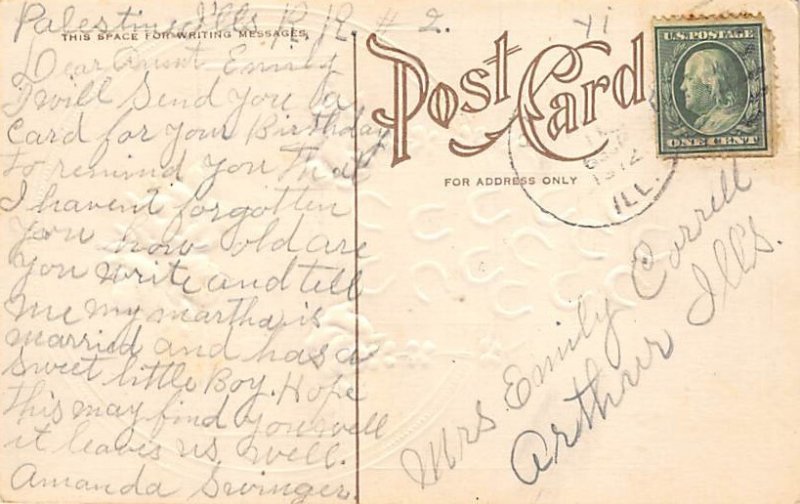 Palestine Ills R R # 2.
THIS SPACE FOR WRITING MESSAGES
Dear Aunt Emily
I will Send you a
Card for your Birthday
to remind you That
I havent forgotten
you how old are
you write and tell
me my martha is
married and has a
sweet little Boy. Hope
this may find you well
it leaves us, well.
Amanda Swinger
Post Card
FOR ADDRESS ONLY
U.S. POSTAGE
ONE CENT
1912
ILL.
Mrs Emily Correll
Arthur Ills.